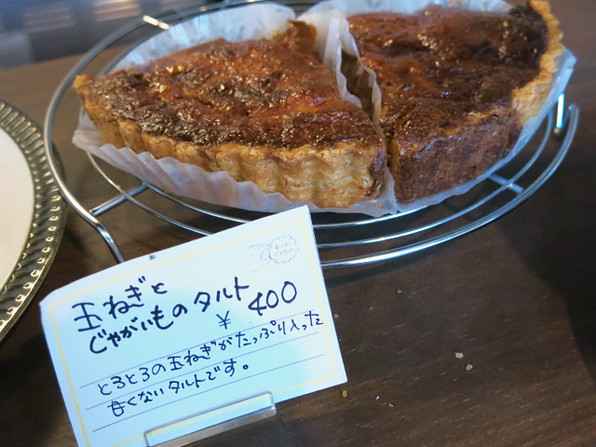 玉ねぎと
じゃがいものタルト
¥400
とろとろの玉ねぎがたっぷり入った
甘くないタルトです。